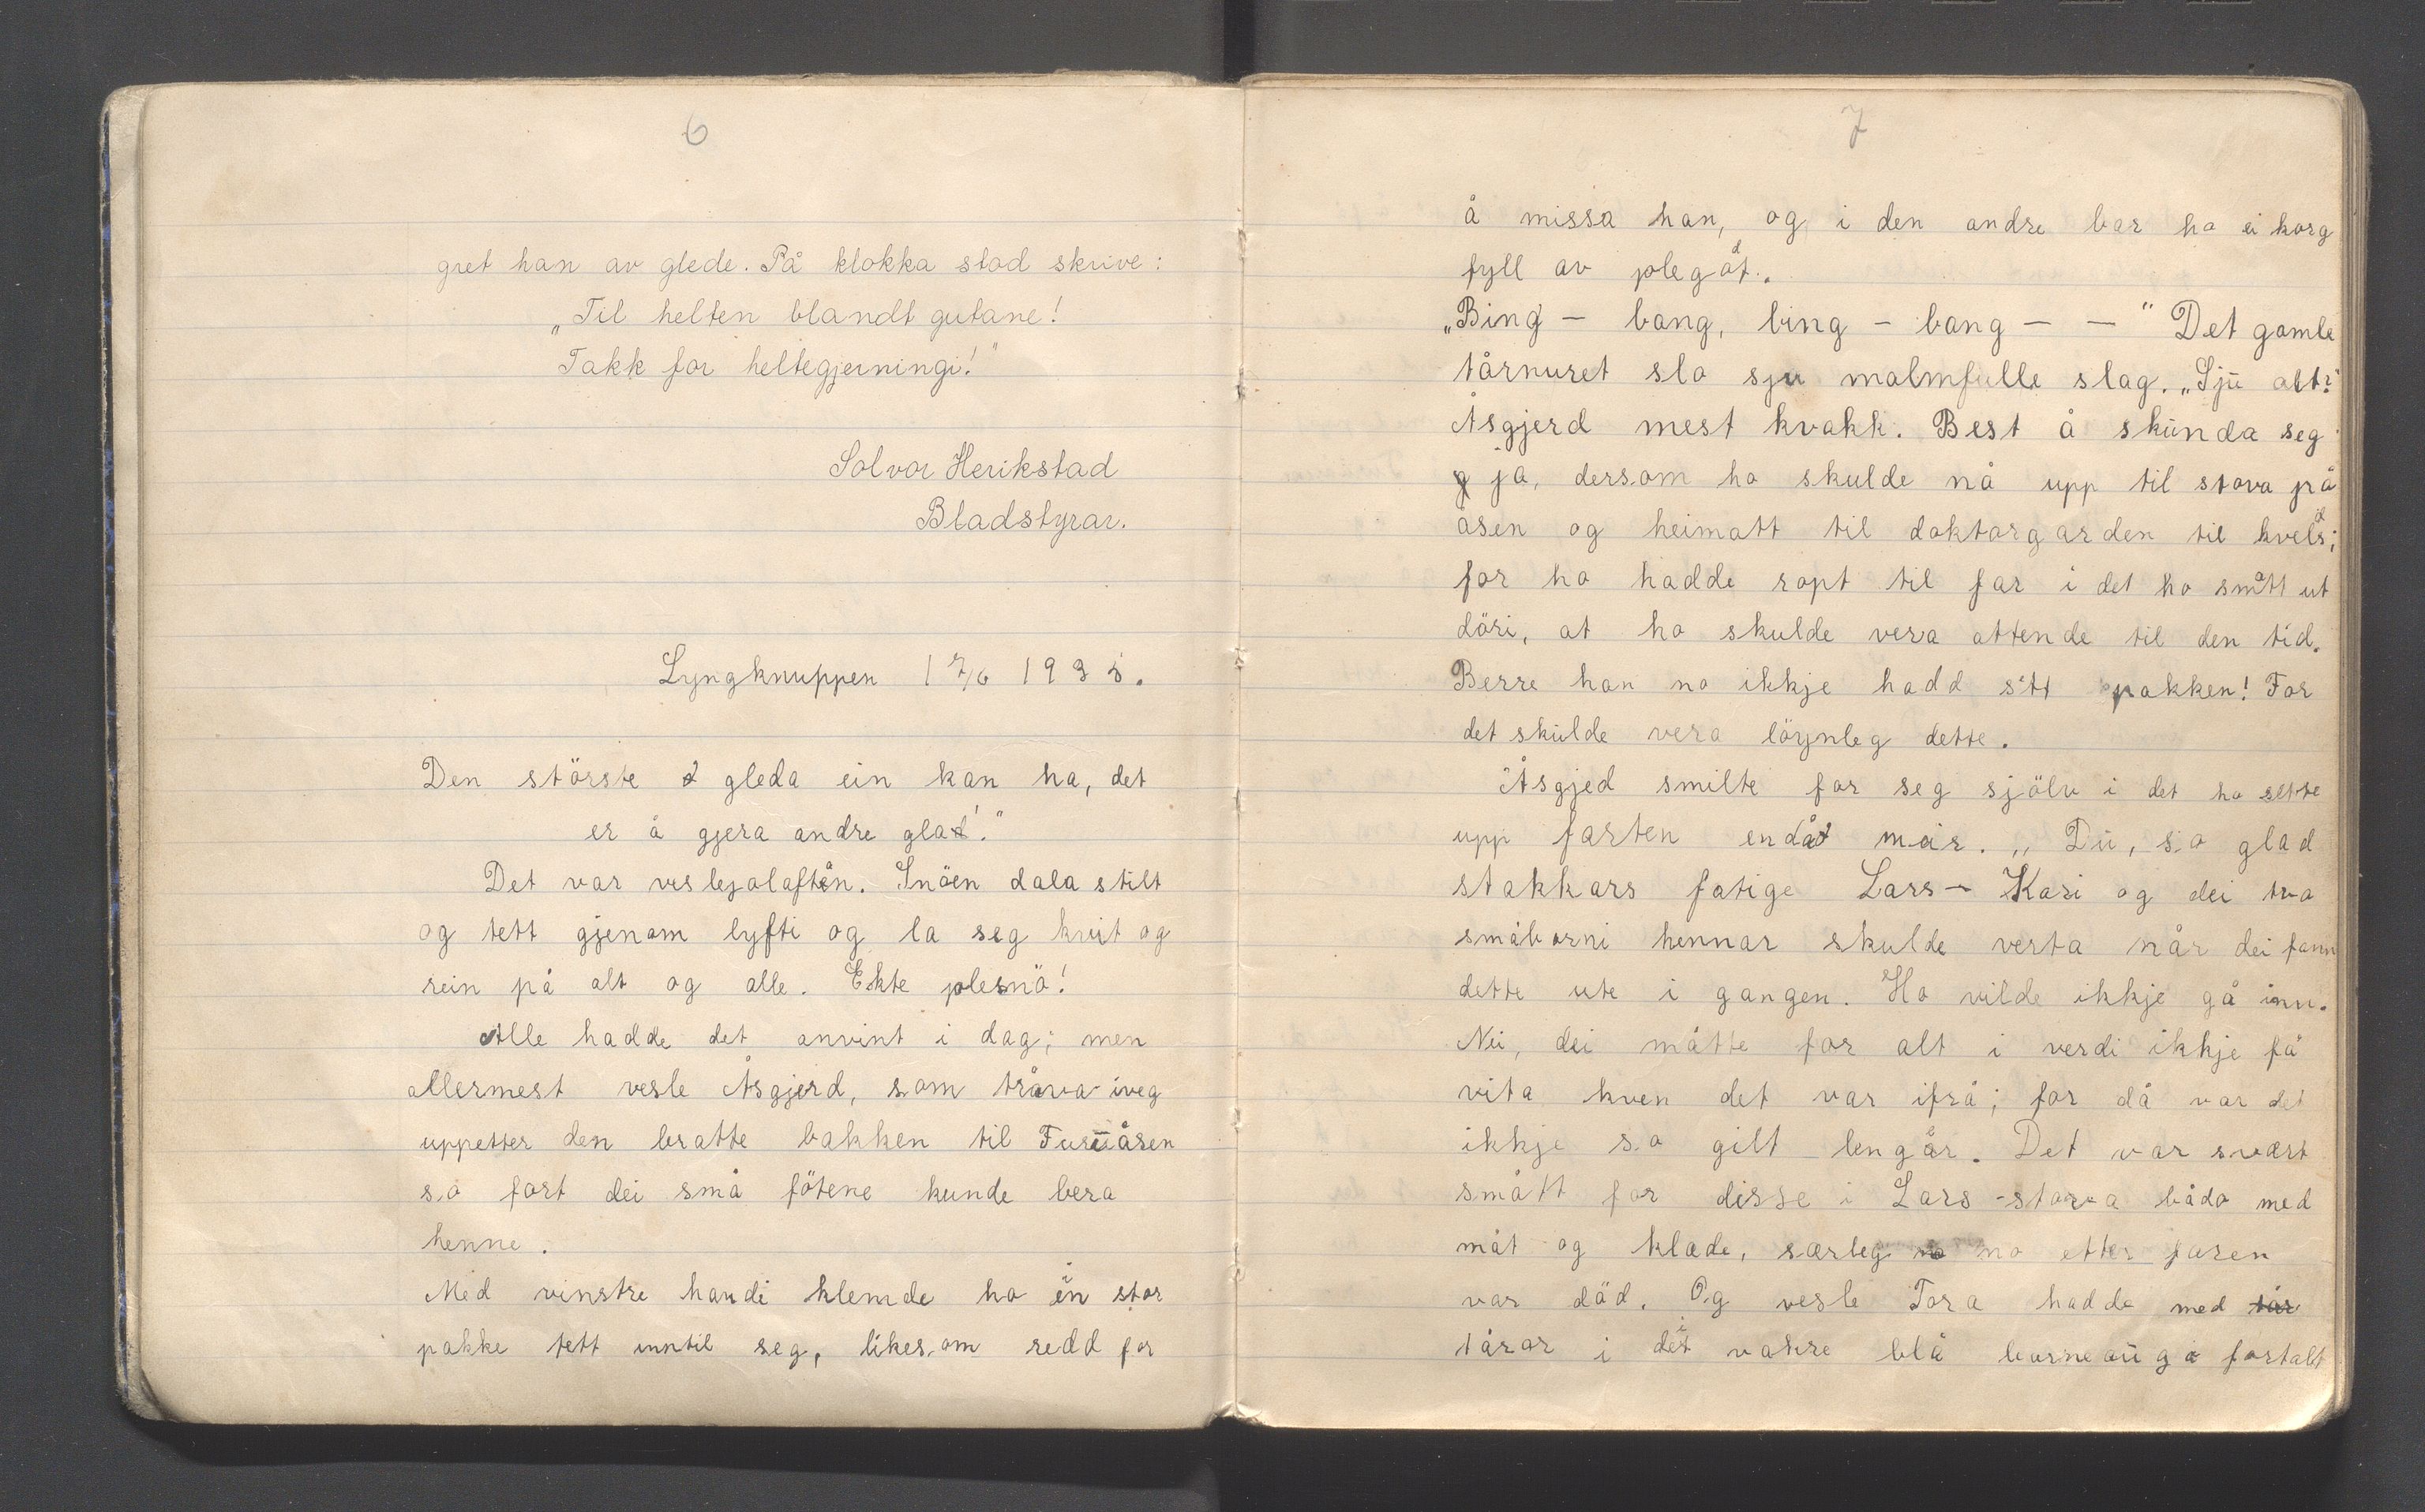 6
gret han av glede. På klokka stod skrive:
„Til helten blandt gutane!
Takk for heltegjerningi!"
Solvor Herikstad
Bladstyrar.
Lyngknuppen 17/6 1935.
Den störste gleda ein kan ha, det
er å gjera andre glad!"
Det var veslejolaftån. Snöen dala stilt
og tett gjenom lyfti og la seg kvit og
rein på alt og alle. Ekte jolesnö!
Alle hadde det onvint i dag; men
allermest vesle Åsgjerd, som tråva iveg
uppetter den bratte bakken til Furuåsen
so fort dei små fötene kunde bera
henne.
Med vinstre handi klemde ho ein stor
pakke tett inntil seg, likesom redd for
7
å missa han, og i den andre bar ho ei korg
fyll av jolegåt.
„Bing - bang, bing - bang - - " Det gamle
tårnuret slo sju malmfulle slag. „Sju alt?"
Åsgjerd mest kvakk. Best å skunda seg
ja, dersom ho skulde nå upp til stova på
åsen og heimatt til doktorgarden til kvelds;
for ho hadde ropt til far i det ho smått ut
döri, at ho skulde vera attende til den tid.
Berre han no ikkje hadd sitt pakken! For
det skulde vera löynleg dette.
Åsgjed smilte for seg sjölv i det ho sette
upp farten endåt meir. „Du, so glad
stakkars fatige Lars - Kari og dei tvo
småborni hennar skulde verta når dei fann
dette ute i gangen. Ho vilde ikkje gå inn.
Nei, dei måtte for alt i verdi ikkje få
vita kven det var ifrå; for då var det
ikkje so gilt lengår. Det var svært
smått for disse i Lars-stova bådo med
mat og klæde, særleg no etter faren
var död. Og vesle Tora hadde med tår
tårar i dei vakre blå borneaugo fortalt